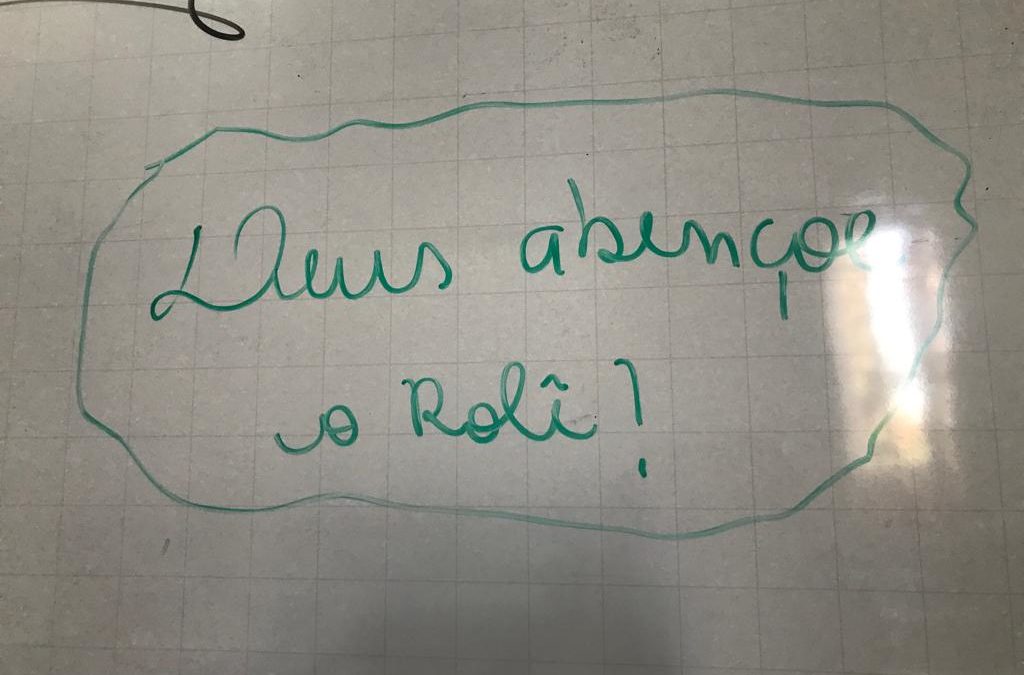 Deus abençoe
o Rolê!